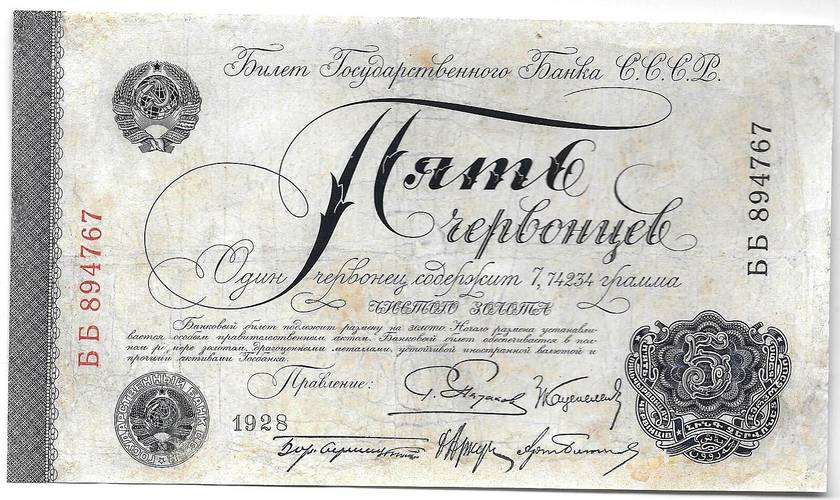 Билет Государственного Банка С.С.С.Р.
Пять
червонцев
Один червонец содержит 7,74234 грамма
чистого золота
Банковый билет подлежит размену на золото. Начало размена устанавли-
вается особым правительственным актом. Банковый билет обеспечивается в пол-
ном размере золотом, драгоценными металлами, устойчивой иностранной валютой и
прочими активами Госбанка.
Правление:
1928
ББ 894767
ББ 894767
ГОСУДАРСТВЕННЫЙ БАНК СССР
5